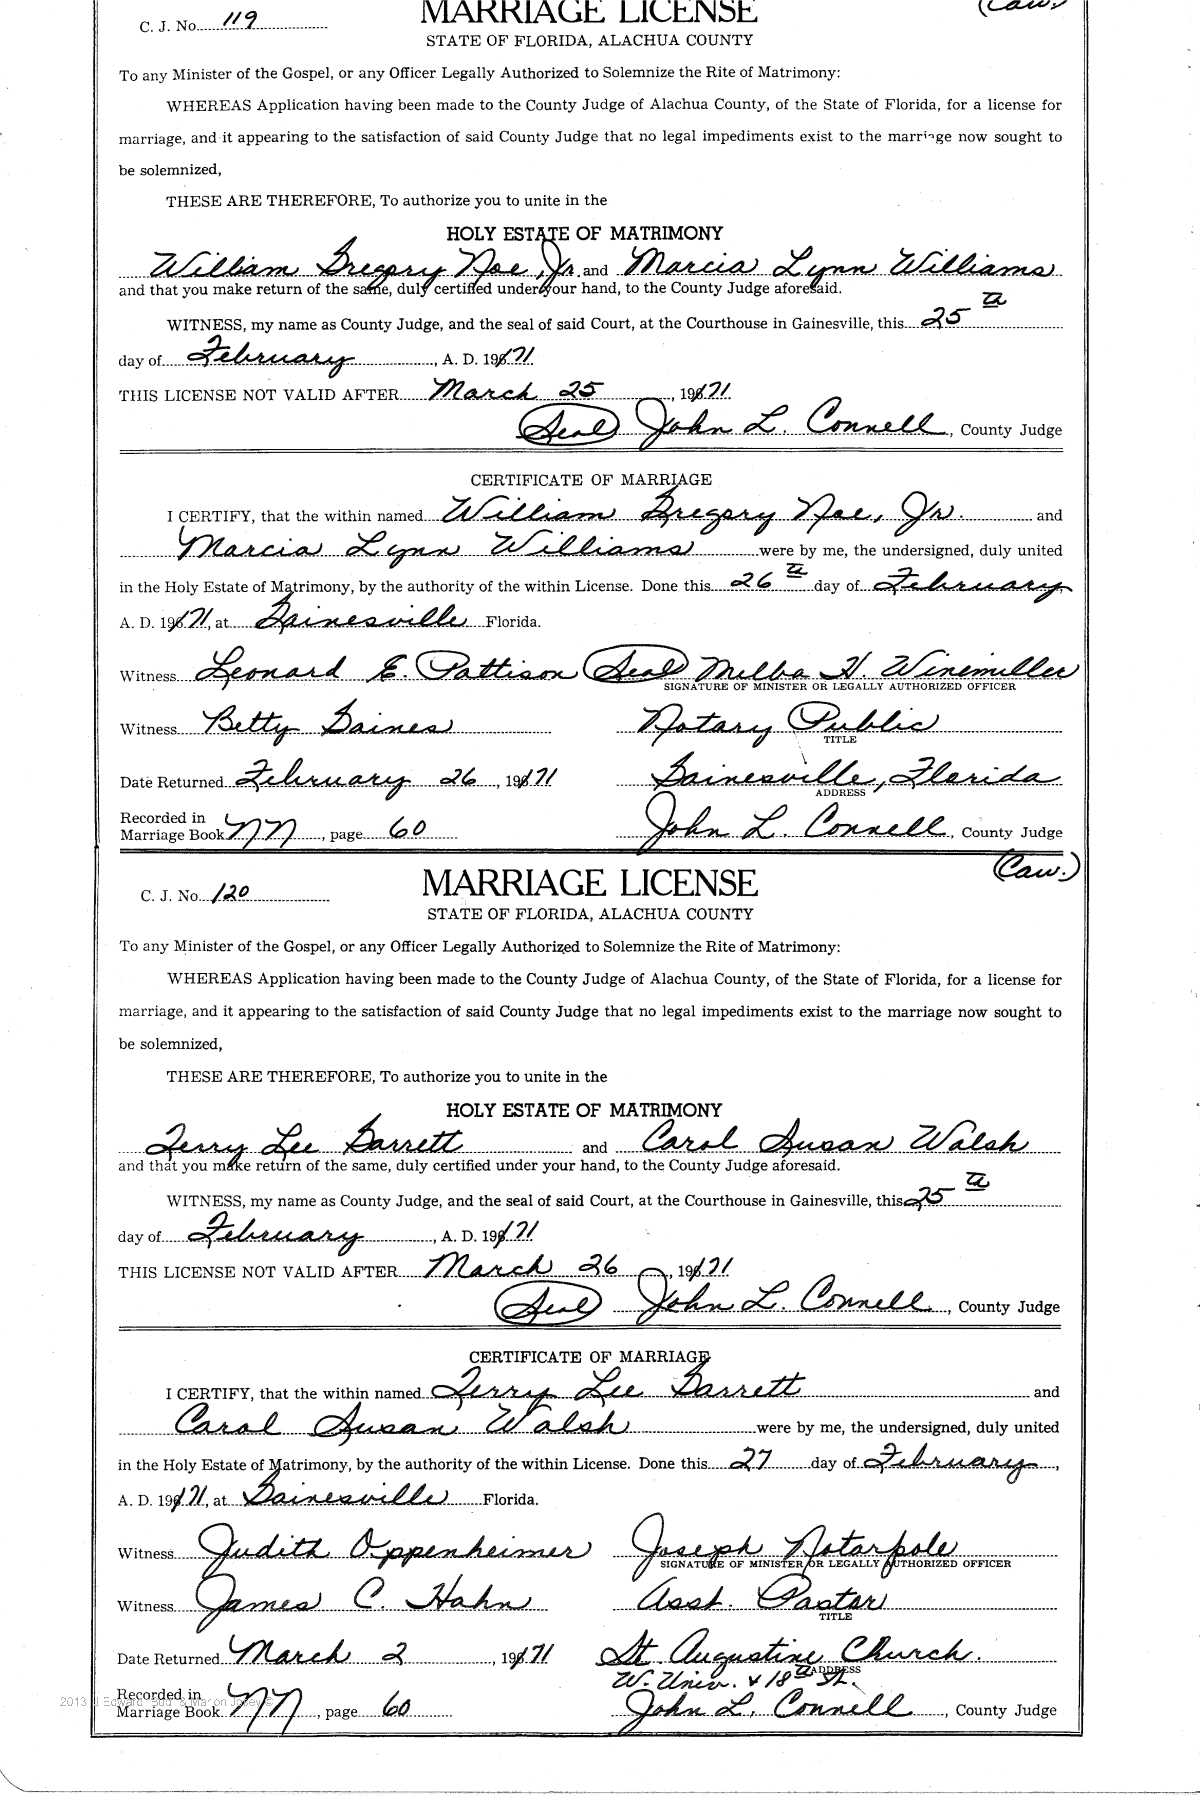 C. J. No. 119 MARRIAGE LICENSE (Caw.)
STATE OF FLORIDA, ALACHUA COUNTY
To any Minister of the Gospel, or any Officer Legally Authorized to Solemnize the Rite of Matrimony:
WHEREAS Application having been made to the County Judge of Alachua County, of the State of Florida, for a license for
marriage, and it appearing to the satisfaction of said County Judge that no legal impediments exist to the marriage now sought to
be solemnized,
THESE ARE THEREFORE, To authorize you to unite in the
HOLY ESTATE OF MATRIMONY
William Gregory Noe, Jr. and Marcia Lynn Williams
and that you make return of the same, duly certified under your hand, to the County Judge aforesaid.
WITNESS, my name as County Judge, and the seal of said Court, at the Courthouse in Gainesville, this 25th
day of February, A. D. 1971.
THIS LICENSE NOT VALID AFTER March 25, 1971.
(Seal) John L. Connell, County Judge
CERTIFICATE OF MARRIAGE
I CERTIFY, that the within named William Gregory Noe, Jr. and
Marcia Lynn Williams were by me, the undersigned, duly united
in the Holy Estate of Matrimony, by the authority of the within License. Done this 26th day of February
A. D. 1971, at Gainesville Florida.
Witness Leonard E. Pattison (Seal) Melba H. Winemiller
SIGNATURE OF MINISTER OR LEGALLY AUTHORIZED OFFICER
Witness Betty Gaines Notary Public
TITLE
Date Returned February 26, 1971 Gainesville, Florida
ADDRESS
Recorded in
Marriage Book NN, page 60 John L. Connell, County Judge
(Caw.)
C. J. No. 120 MARRIAGE LICENSE
STATE OF FLORIDA, ALACHUA COUNTY
To any Minister of the Gospel, or any Officer Legally Authorized to Solemnize the Rite of Matrimony:
WHEREAS Application having been made to the County Judge of Alachua County, of the State of Florida, for a license for
marriage, and it appearing to the satisfaction of said County Judge that no legal impediments exist to the marriage now sought to
be solemnized,
THESE ARE THEREFORE, To authorize you to unite in the
HOLY ESTATE OF MATRIMONY
Terry Lee Garrett and Carol Susan Walsh
and that you make return of the same, duly certified under your hand, to the County Judge aforesaid.
WITNESS, my name as County Judge, and the seal of said Court, at the Courthouse in Gainesville, this 25th
day of February, A. D. 1971
THIS LICENSE NOT VALID AFTER March 26, 1971
(Seal) John L. Connell, County Judge
CERTIFICATE OF MARRIAGE
I CERTIFY, that the within named Terry Lee Garrett and
Carol Susan Walsh were by me, the undersigned, duly united
in the Holy Estate of Matrimony, by the authority of the within License. Done this 27 day of February,
A. D. 1971, at Gainesville Florida.
Witness Judith Oppenheimer Joseph Notarpole
SIGNATURE OF MINISTER OR LEGALLY AUTHORIZED OFFICER
Witness James C. Hahn Asst. Pastor
TITLE
Date Returned March 2, 1971 St. Augustine Church.
ADDRESS
W. Univ. & 18th St.
Recorded in
Marriage Book NN, page 60 John L. Connell, County Judge
2013